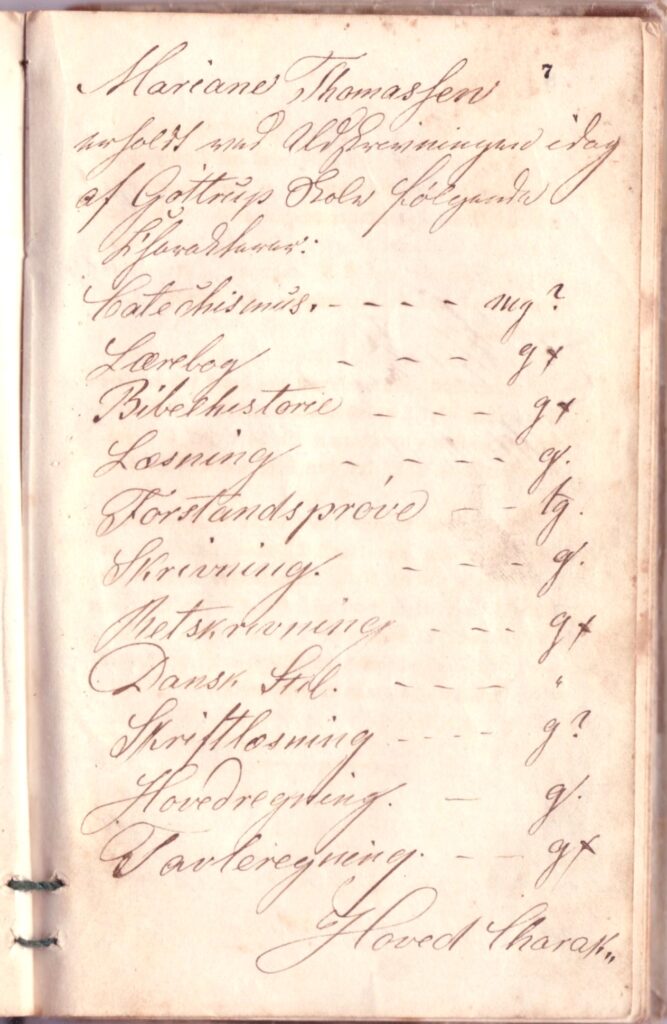 7
Mariane Thomassen
erholdt ved Udskrivningen idag
af Gøttrup Skole følgende
Charakterer:
Catechismus. - - - - mg?
Lærebog - - - - g x
Bibelhistorie - - - g x
Læsning - - - - g.
Forstandsprøve - - tg.
Skrivning. - - - g.
Retskrivning - - - g x
Dansk Stil. - - - "
Skriftlæsning - - - - g?
Hovedregning. - g.
Tavleregning. - - g x
Hoved Charak"